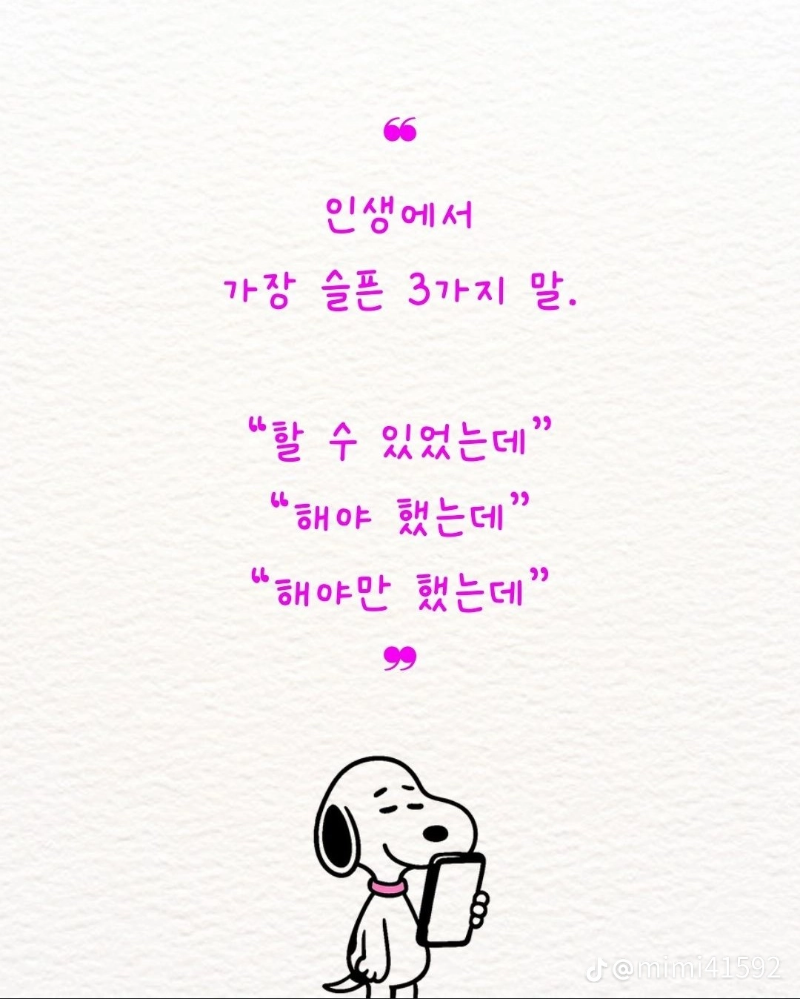 ❝
인생에서
가장 슬픈 3가지 말.
“할 수 있었는데”
“해야 했는데”
“해야만 했는데”
❞
@mimi41592